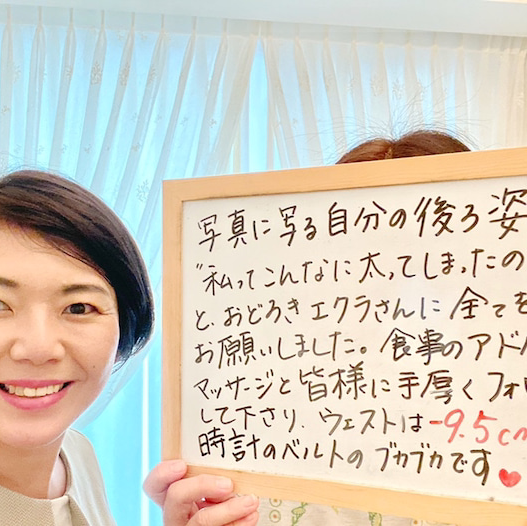 写真に写る自分の後ろ姿
"私ってこんなに太ってしまったの
と、おどろきエクラさんに全てを
お願いしました。食事のアド
マッサージと皆様に手厚くフォロ
して下さり、ウェストは-9.5cm
時計のベルトのブカブカです♥